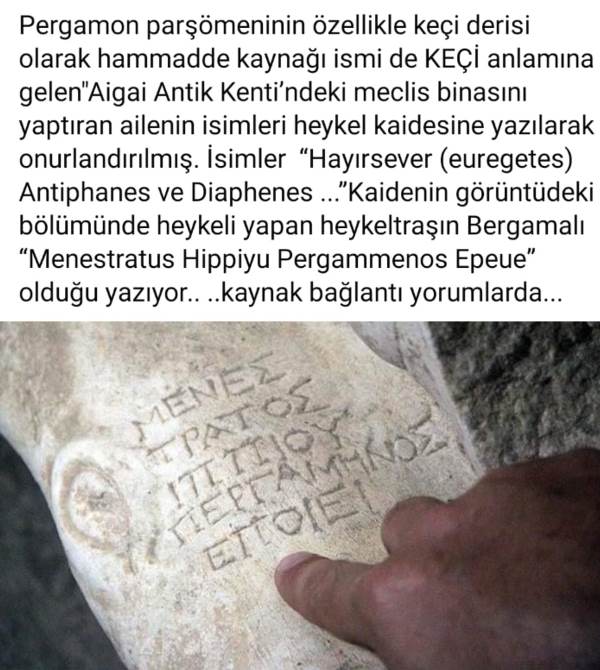 Pergamon parşömeninin özellikle keçi derisi
olarak hammadde kaynağı ismi de KEÇİ anlamına
gelen"Aigai Antik Kenti’ndeki meclis binasını
yaptıran ailenin isimleri heykel kaidesine yazılarak
onurlandırılmış. İsimler “Hayırsever (euregetes)
Antiphanes ve Diaphenes ...”Kaidenin görüntüdeki
bölümünde heykeli yapan heykeltraşın Bergamalı
“Menestratus Hippiyu Pergammenos Epeue”
olduğu yazıyor.. ..kaynak bağlantı yorumlarda...
ΜΕΝΕΣ
ΤΡΑΤΟΣ
ΙΠΠΙΟΥ
ΠΕΡΓΑΜΗΝΟΣ
ΕΠΟΙΕΙ